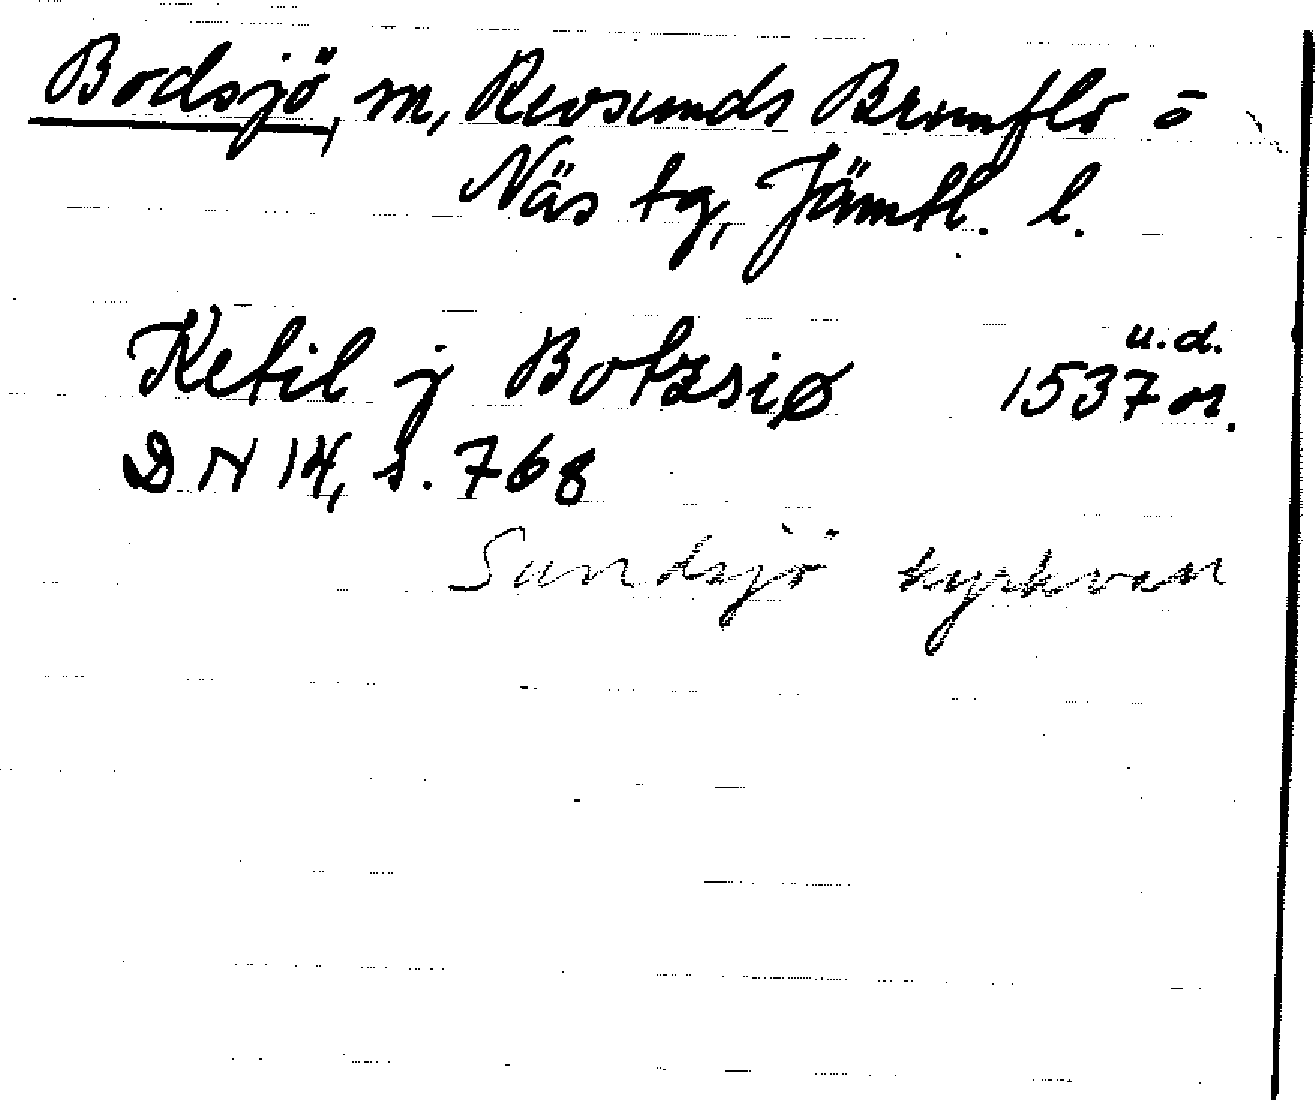 Bodsjö, sn, Revsunds Brunflo o
Näs tg, Jämtl. l.
Ketil j Botzsiø 1537 u.d. or.
DN 14, s. 768
Sundsjö kyrkven